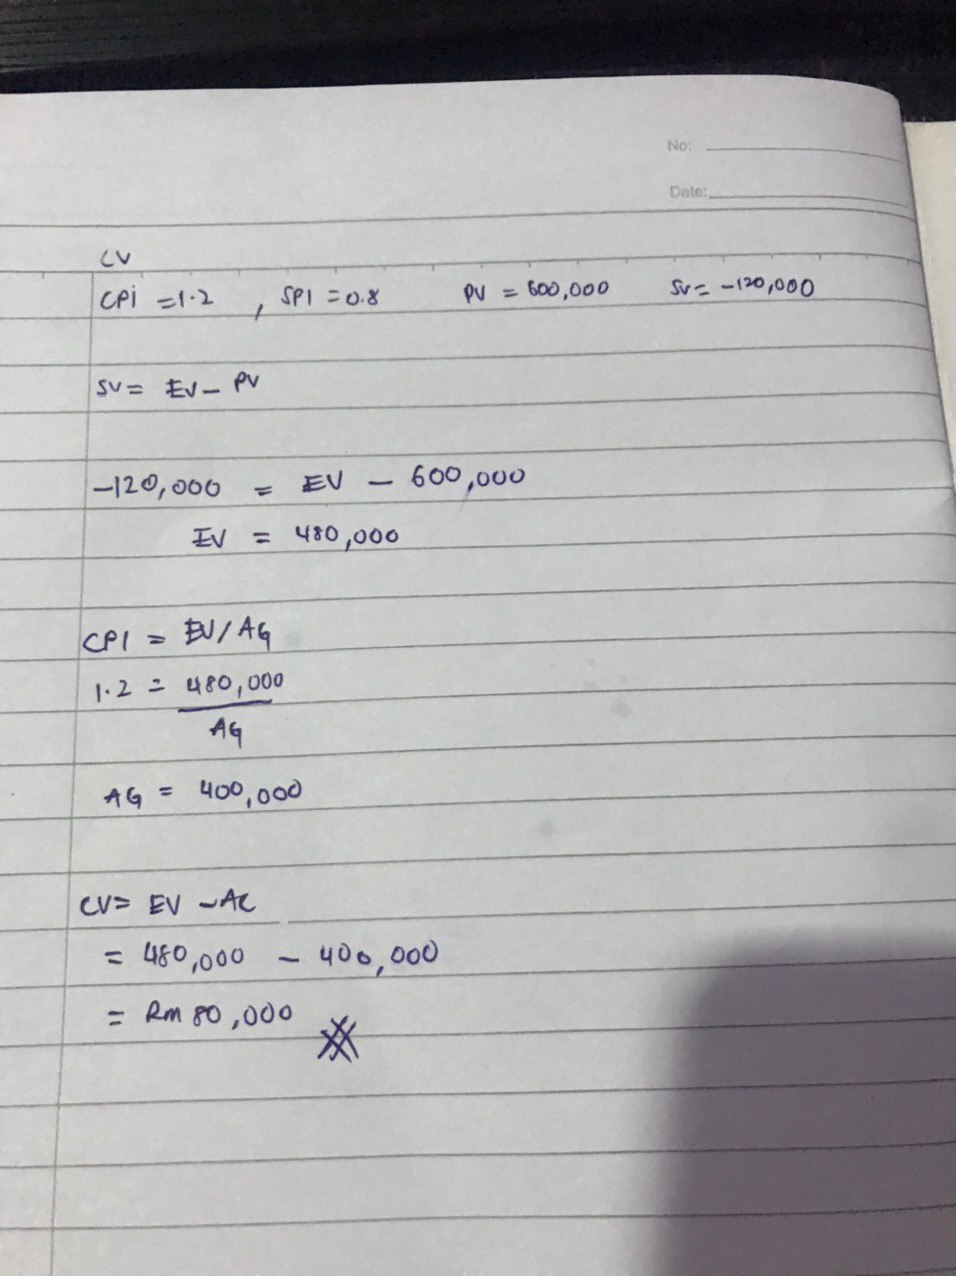 No:
Date:
CV
CPi = 1.2 , SPI = 0.8 PV = 600,000 SV = -120,000
SV = EV - PV
-120,000 = EV - 600,000
EV = 480,000
CPI = EV/AG
1.2 = 480,000
AG
AG = 400,000
CV = EV - AC
= 480,000 - 400,000
= Rm 80,000